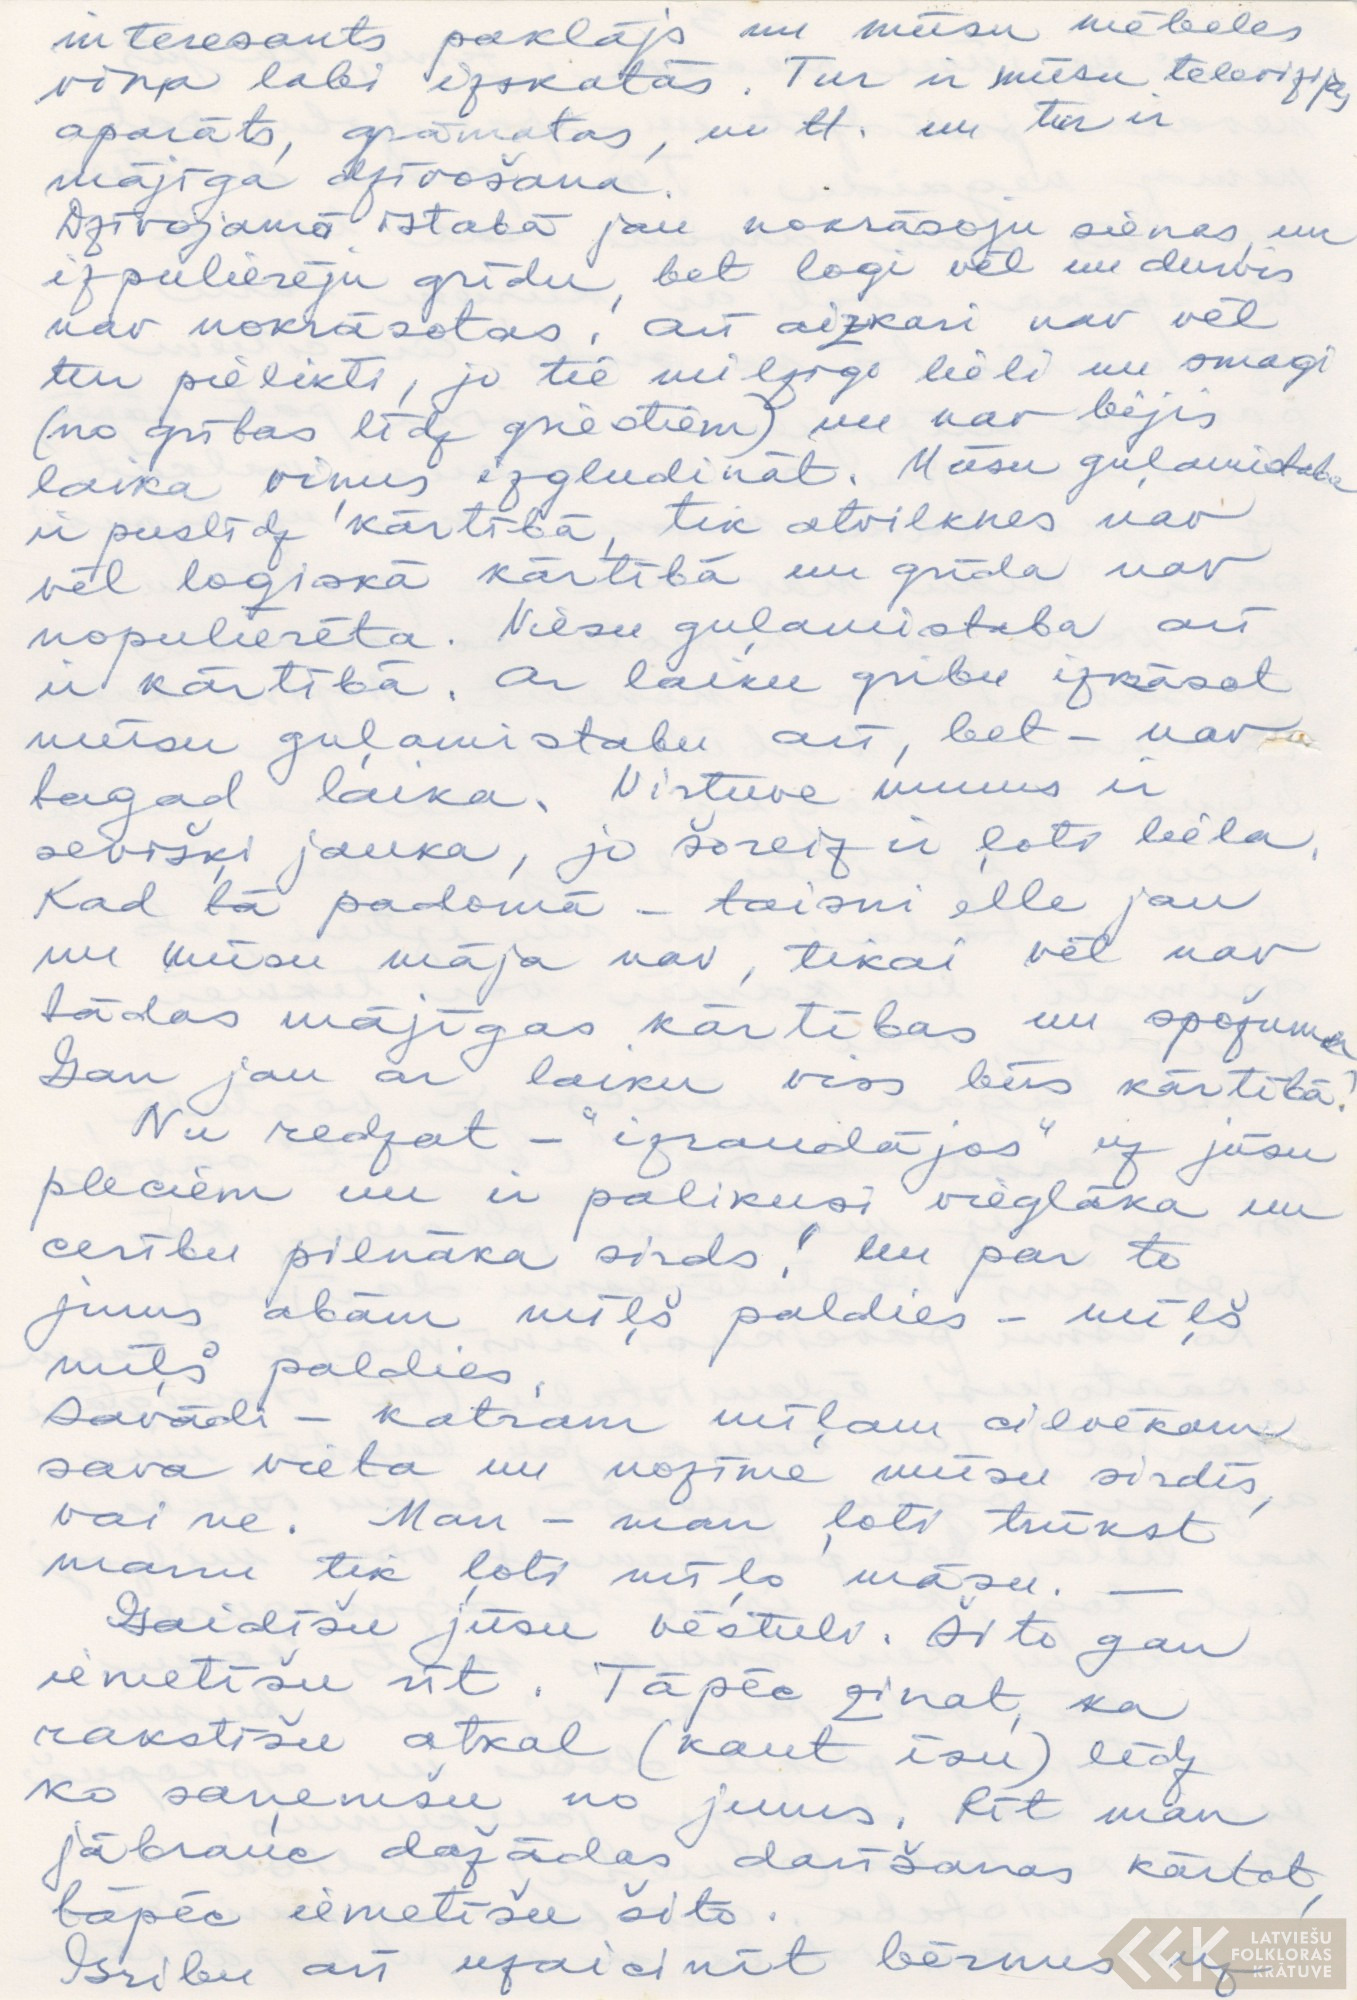 interesants paklājs un mūsu mēbeles
viņa labi izskatās. Tur ir mūsu televizijas
aparāts, grāmatas, u tt. un tur ir
mājīga dzīvošana.
Dzīvojamā istabā jau nokrāsoju sienas un
izpulierēju grīdu, bet logi vēl un durvis
nav nokrāsotas. Arī aizkari nav vēl
tur pielikti, jo tie milzīgi lieli un smagi
(no grības līdz griestiem) un nav bijis
laika viņus izgludināt. Mūsu guļamistaba
ir puslīdz kārtībā, tik atvilknes nav
vēl loģiskā kārtībā un grīda nav
nopulierēta. Viesu guļamistaba arī
ir kārtībā. Ar laiku gribu izkāsot
mūsu guļamistabu arī, bet – nav
tagad laika. Virtuve mums ir
seviški jauka, jo šoreiz ir ļoti liela.
Kad tā padomā – taisni elle jau
nu mūsu māja nav, tikai vēl nav
tādas mājīgas kārtības un spožuma
Gan jau ar laiku viss būs kārtībā!
Nu redzat – "izraudājos" uz jūsu
pleciem un ir palikusi vieglāka un
cerību pilnāka sirds! Un par to
jums abām mīļš paldies – mīļš
mīļš paldies.
Savādi – katram mīļam cilvēkam
sava vieta un nozīme mūsu sirdīs,
vai ne. Man – man ļoti trūkst
manu tik ļoti mīļo māsu. —
Gaidīšu jūsu vēstuli. Šito gan
iemetīšu rīt. Tāpēc zinat, ka
rakstīšu atkal (kaut īsu) līdz
ko saņemšu no jums. Rīt man
jābrauc dažādas darīšanas kārtot,
tāpēc iemetīšu šito.
Gribu arī uzaicināt bērnus uz
LATVIEŠU
FOLKLORAS
KRĀTUVE